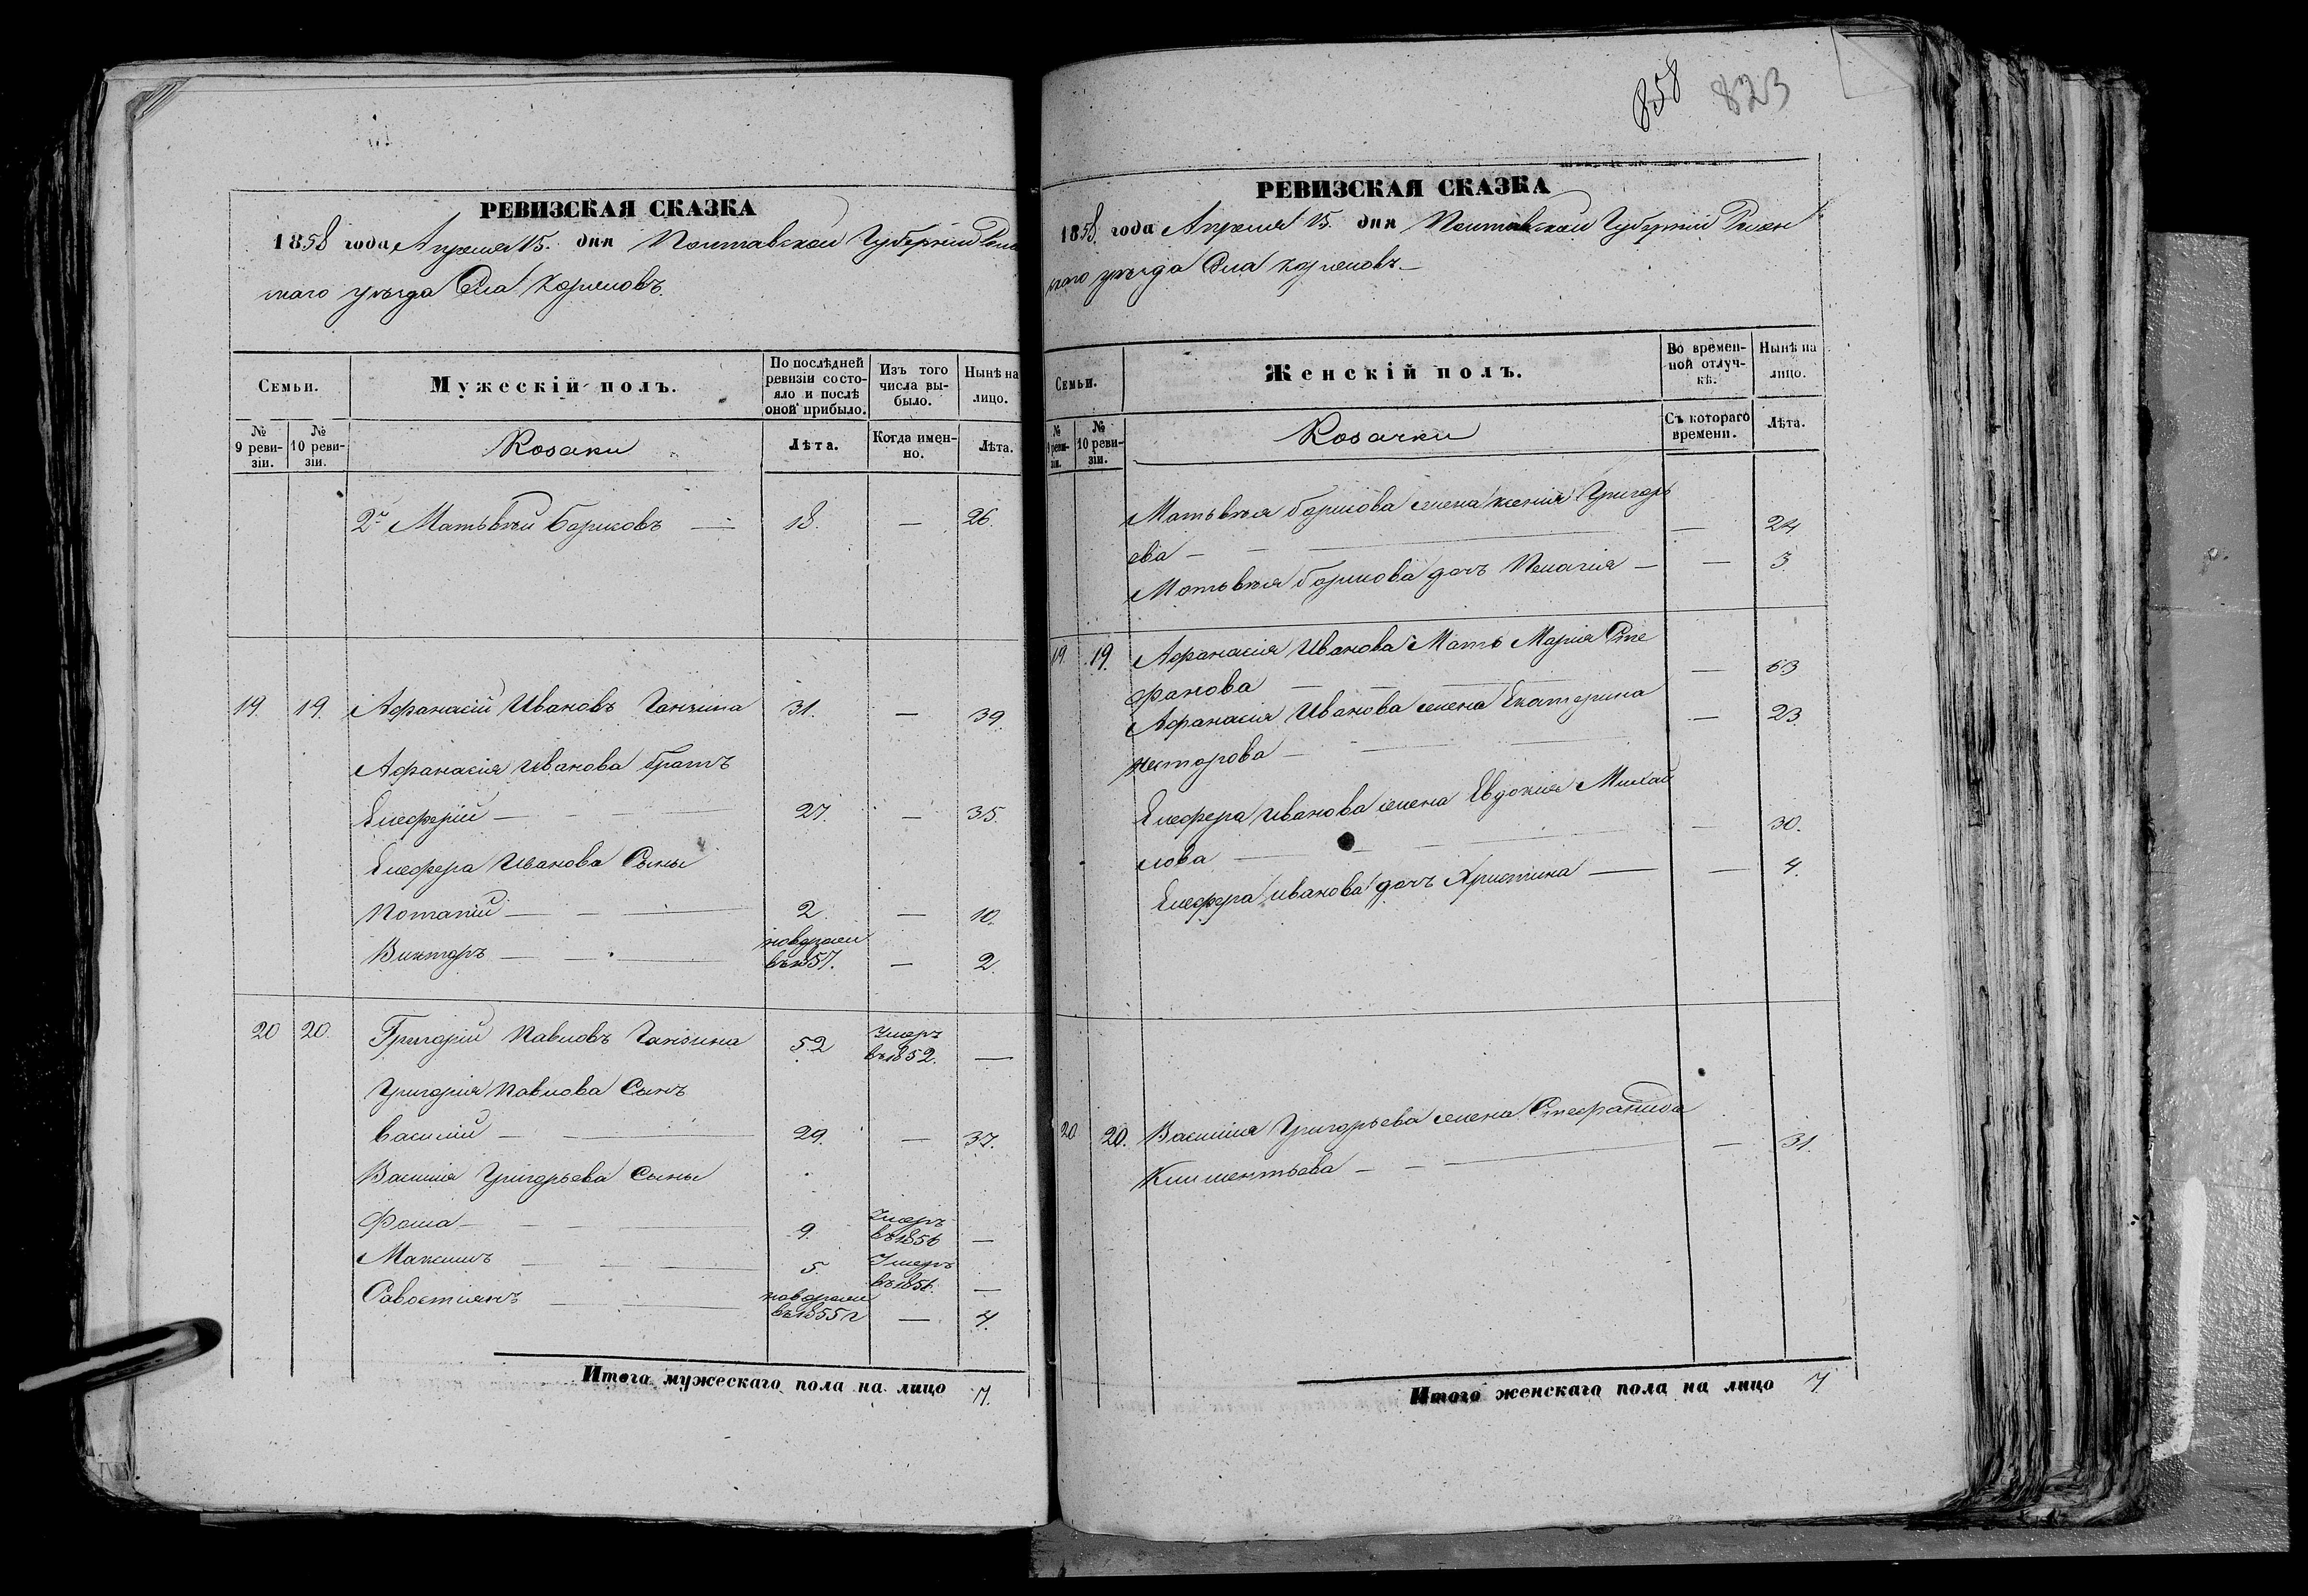 РЕВИЗСКАЯ СКАЗКА
1858 года Апреля 15. дня Полтавской Губернии
скаго уезда Села
Семьи.
Мужескій полъ.
По послѣдней ревизіи состояло и послѣ оной прибыло.
Изъ того числа выбыло.
Нынѣ на лицо.
№ 9 ревизіи.
№ 10 ревизіи.
Козаки
Лѣта.
Когда именно.
Лѣта.
2й Матьвѣй Борисовъ — 18. — 26.
19. 19. Афанасій Ивановъ 31. — 39.
Афанасія Иванова братъ
Елефферій — 27. — 35.
Елефера Иванова Сыны
Потапій — 2. — 10.
Викторъ — новорожд. въ 1857. — 2.
20 20. Григорій Павловъ 52 Умеръ въ 1852. —
Григорія Павлова Сынъ
Василій — 29. — 37.
Василія Григорьева Сыны
Фома — 9. Умеръ въ 1856 —
Максимъ — 5. Умеръ въ 1856. —
Савостиянъ — въ 1855 г — 4.
Итого мужескаго пола на лицо 7.
858 823
РЕВИЗСКАЯ СКАЗКА
1858. года Апреля 15. дня Полтавской Губерніи Ромен
скаго уезда Села
Семьи.
Женскій полъ.
Во временной отлучкѣ.
Нынѣ на лицо.
№ 9 ревизіи.
№ 10 ревизіи.
Козачки
Съ котораго времени.
Лѣта.
Матьвѣя Борисова жена Ксенія Григорь
ева — — 24
Матьвѣя Борисова дочь Пелагія — — 3.
19. 19. Афанасія Иванова Мать Марія Сте
фанова — — 63
Афанасія Иванова жена Екатерина
Несторова — — 23.
Елефера Иванова жена Евдокія Михай
лова — — 30.
Елефера Иванова дочь Христина — — 4.
20. 20. Василія Григорьева жена Стефанида
Климентьева — — 31.
Итого женскаго пола на лицо 7